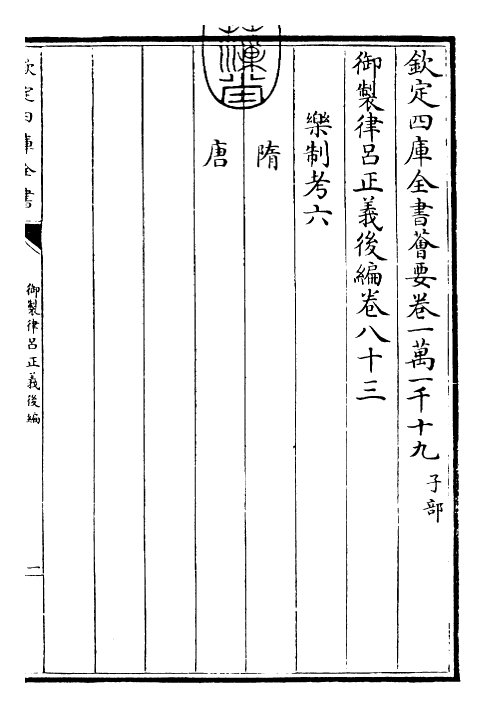 欽定四庫全書薈要卷一萬一千十九 子部
御製律呂正義後編卷八十三
樂制考六
隋
唐
欽定四庫全書
御製律呂正義後編
一